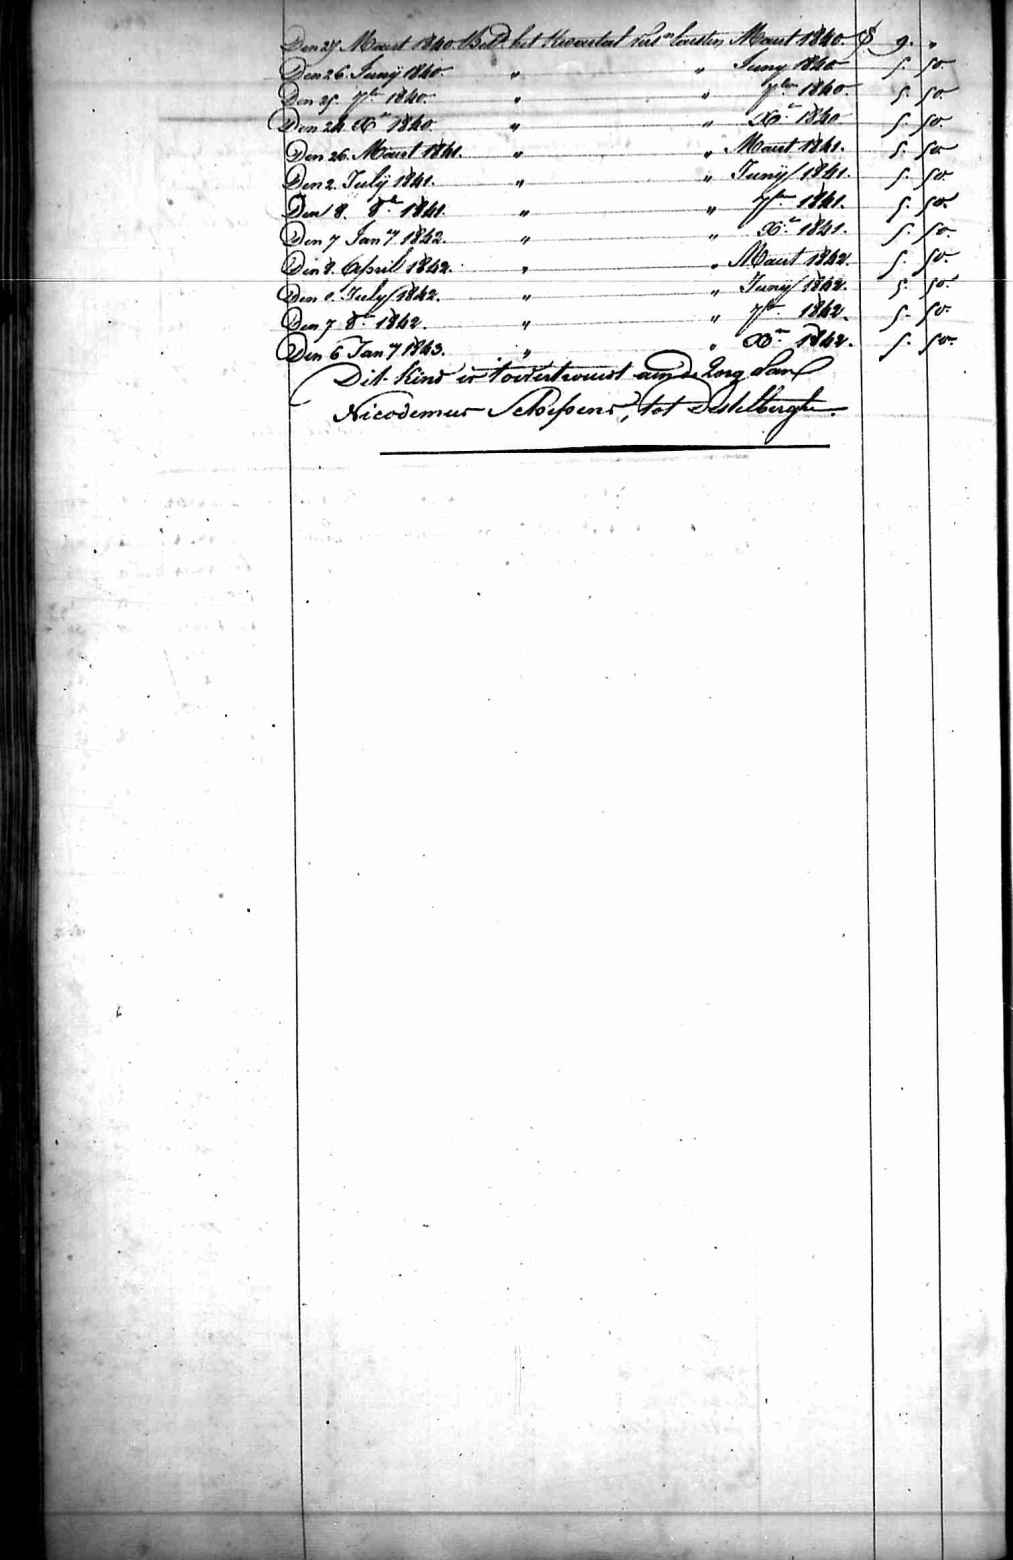 Den 27 Maart 1840. Bet.d het Kwartal vers.n laesten Maart 1840. 9. "
Den 26. Junÿ 1840. " " Juny 1840 5. 50.
Den 25. 7bre 1840. " " 7bre 1840. 5. 50.
Den 24. Xbre 1840. " " Xbre 1840 5. 50.
Den 26. Maart 1841. " " Maart 1841. 5. 50
Den 2. Julÿ 1841. " " Junÿ 1841. 5. 50.
Den 8. 8bre 1841. " " 7bre 1841. 5. 50.
Den 7 Jany 1842. " " Xbre 1841. 5. 50.
Den 8. April 1842. " " Maart 1842. 5. 50.
Den July 1842. " " Junÿ 1842. 5. 50.
Den 7 8bre 1842. " " 7bre 1842. 5. 50.
Den 6 Jany 1843. " " Xbre 1842. 5. 50.
Dit kind is toevertrouwt aan de zorg van
Nicodemus Schepens, tot Destelberghe.